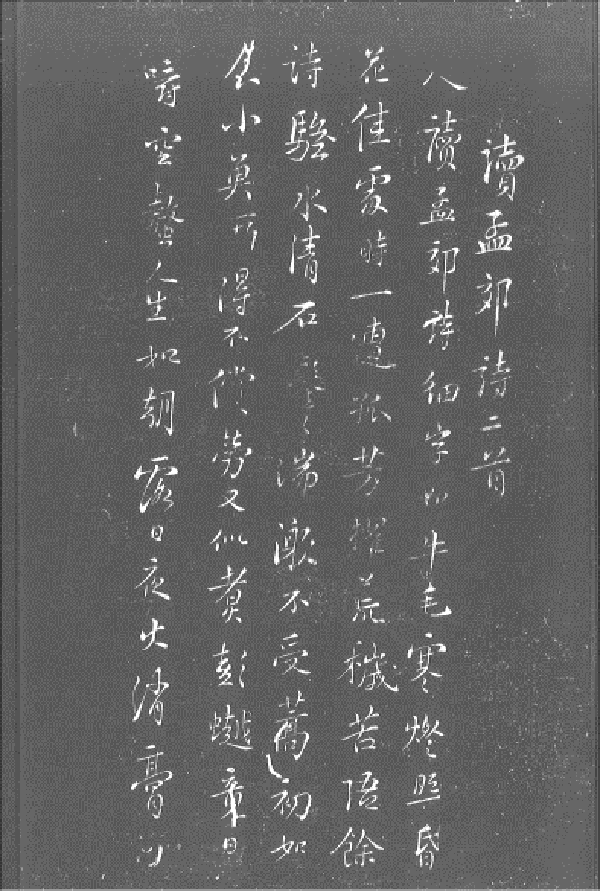 讀孟郊詩二首
讀孟郊詩細字如牛毛寒燈照昏
花佳處時一遭孤芳擢荒穢苦語餘
詩騷水清石鑿々湍激不受篙初如
食小魚所得不償勞又似煮彭竟日
嚼空螯人生如朝露日夜火消膏何